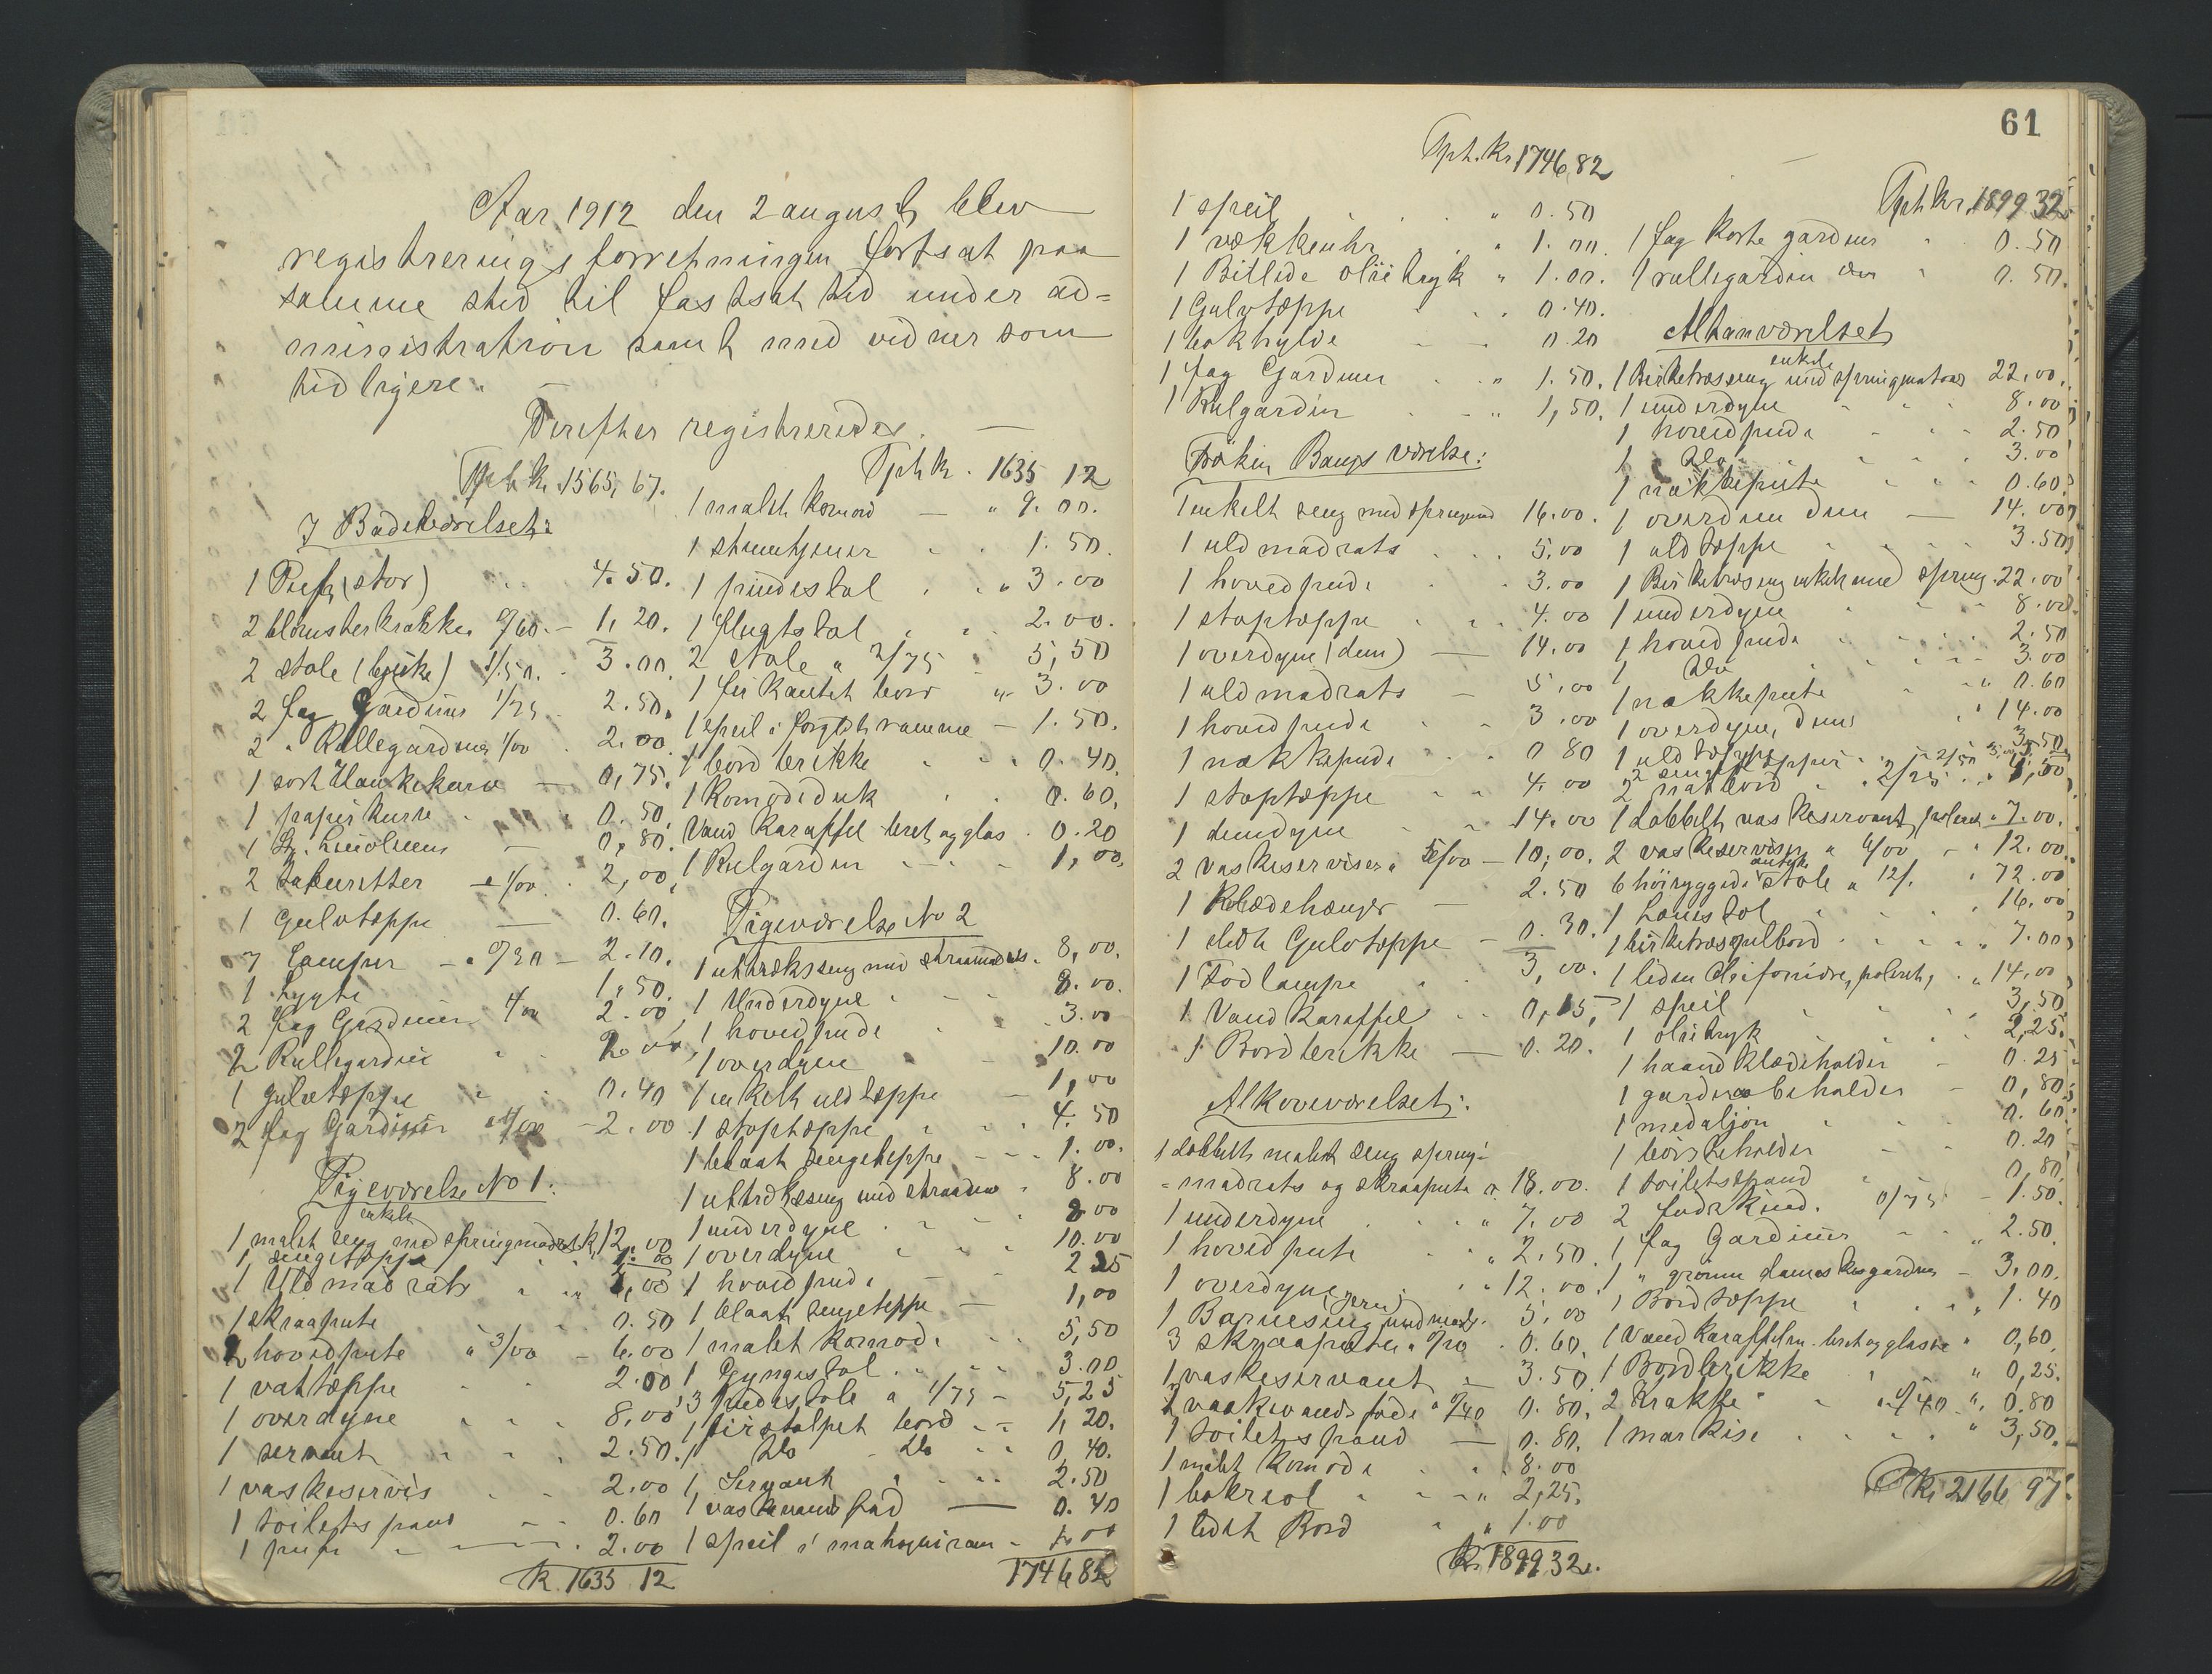 Aar 1912 den 2 august blev
registreringsforretningen fortsat paa
samme sted til fastsat tid under ad=
ministration samt med vidner som
tidligere. —
Derefter registreredes. —
Tph kr. 1565,67.
I Badeværelset:
1 Puf (stor) 4.50.
2 blomsterkrakker 0/60. — 1,20.
2 stole (birke) 1/50. - 3.00
2 fag Gardiner 1/25 - 2.50.
2 " Rullegardiner 1/00 . 2.00.
1 sort Hankekurv — 0,75.
1 papirkurv 0.50.
1 St. Linoleum — 0.80.
2 taburetter a 1/00 . 2,00
1 Gulvtæppe — 0.60.
7 Lamper — a 0/30 — 2.10.
1 Lygte 1.50.
2 fag Gardiner 1/00 2.00
2 Rullegardin 2.00
1 gulvtæppe 0.40
2 fag Gardiner a 1/00 - 2.00
Pigeværelse No 1:
enkelt
1 malet seng med springmadrats k. 12.00
1 sengetæppe 1.00
1 Uld madrats 1,00
1 skraapute 0.50
2 hovedpute a 3/00 - 6.00
1 vattæppe 2.00
1 overdyne 8,00
1 servant 2.50.
1 vaskeservis 2.00
1 toiletspand 0.60
1 puf 2.00
K. 1635 12
Tph k. 1635 12
1 malt komod — " 9.00.
1 stumtjener 1.50.
1 pindestol " 3.00
1 flugtstol 2.00.
2 stole a 2/75 5,50
1 firkantet bord " 3.00
1 speil i forgylt ramme — 1.50.
1 bord brikke 0.40.
1 Komodeduk 0.60.
Vand Karaffel bret og glas . 0.20
1 Rulgardin 1,00.
Pigeværelse No 2
1 uttræksseng med straamadrats. 8,00.
1 Underdyne 8.00.
1 hovedpude 3.00
1 overdyne 10.00
1 enkelt uldtæppe — 1,00
1 stoptæppe 4.50
1 blaat sengeteppe 1.00.
1 uttræksseng med straamadr. 8.00
1 underdyne 8.00
1 overdyne 10.00
1 hovedpude 2 25
1 blaat sengeteppe — 1,00
1 malet komode 5,50
1 Gyngestol 3.00
3 pindestole a 1/75 — 5,25
1 firstolpet bord 1,20.
1 Do Do 0,40.
1 Servant 2.50
1 vaskevandsfad — 0.40
1 speil i mahogniram.
1746 82
61
Tph. kr. 1746,82
1 speil " 0.50
1 vækkeuhr " 1.00.
1 Billede olietryk " 1.00.
1 Gulvtæppe 0.40.
1 bokhylde 0.20
1 fag Gardiner " 1.50.
1 Rulgardin " 1,50.
Frøken Bangs værelse:
1 enkelt seng med springmad 16.00.
1 uld madrats 5.00
1 hovedpude 3.00
1 stoptæppe 4.00
1 overdyne (dun) — 14.00
1 uld madrats — 5,00
1 hovedpude 3.00
1 nakkepude 0 80
1 stoptæppe 4.00
1 dundyne 14.00
2 vaskeserviser a 5/00 — 10,00.
1 Klædehænger — 2.50
1 slidt Gulvtæppe — 0.30.
1 Fod lampe 3,00.
1 Vand Karaffel 0,15,
1 Bord brikke — 0.20.
Alkoveværelset:
1 dobbelt malet seng spring=
=madrats og skraaputa a. 18.00.
1 underdyne " 7.00
1 hoved pute " 2.50.
1 overdyne 12.00
(jern)
1 Barneseng med madr. 5,00
3 skraaputer a 0/20 . 0.60.
1 vaskeservant — 3.50
2 vaskevandsfade a 0/40 0.80.
1 toiletspand — 0.80.
1 malet Komode 8.00
1 bokreol " 2,25.
1 lidet Bord " 1.00
Kr. 1899 32.
Tph kr. 1899 32
1 fag korte gardiner 0.50
1 rullegardin 0.50.
Altanværelset
enkel
1 Birketræsseng med springmatras 22.00.
1 underdyne 8.00
1 hovedpude 2.50
1 Do 3.00
1 nakkepute 0.60
1 overdun dun — 14.00
1 uldtæppe 3.50
1 Birketræseng enkelt med spring. 22.00
1 underdyne 8.00
1 hoved pude 2.50
1 Do 3.00
1 nakkepute " 0.60
1 overdyne, dun 14.00
1 uldtæppe 3.50
2 sengetæpper a 2/50 5.00
2 natbord a 2/25
1 dobbelt vaskeservant, poleret 7.00.
2 vaskeserviser a 6/00 " 12.00.
antike
6 høiryggede stole a 12/. 72.00
1 Lænestol 16,00
1 birketræspilbord 7.00
1 liden Chifoniere, poleret, " 14,00
1 speil 3,50
1 olietryk 2,25.
1 haandklædeholder — 0.25
1 garderobeholder — 0,80
1 medaljon 0.60
1 børsteholder 0.20
1 toiletspand 0,80
2 faareskind. 0/75 - 1.50.
1 fag Gardiner " 2.50.
1 " grønne damaskesgardiner — 3.00.
1 Bordtæppe " 1.40
1 Vand Karaffel m. bret og glas " 0,60
1 Bordbrikke " 0,25.
2 Krakke a 0/40 " 0.80
1 markise " 3,50.
Kr. 2166 97.